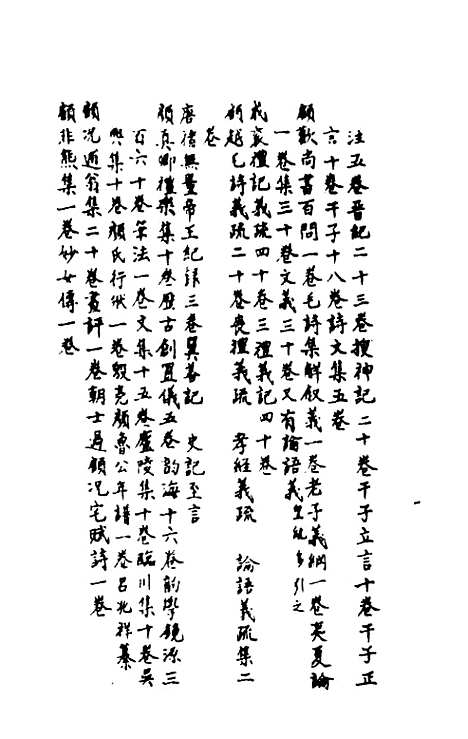 注五卷晉記二十三卷搜神記二十卷干子立言十卷干子正
言十卷干子十八卷詩文集五卷
顧歡尚書百問一卷毛詩集解叙義一卷老子義綱一卷夷夏論
一卷集三十卷文義三十卷又有論語義皇侃多引之
戚衮禮記義疏四十卷三禮義記四十卷
顧越毛詩義疏二十卷喪禮義疏 孝經義疏 論語義疏集二
卷
唐禇無量帝王紀錄三卷翼善記 史記至言
顧真卿禮樂集十卷歷古創置儀五卷韵海十六卷韵學鏡源三
百六十卷筆法一卷文集十五卷廬陵集十卷臨川集十卷吳
興集十卷顏氏行狀一卷殷亮顏魯公年譜一卷呂兆祥纂
顧况逋翁集二十卷畫評一卷朝士過顧况宅賦詩一卷
顧非熊集一卷妙女傳一卷